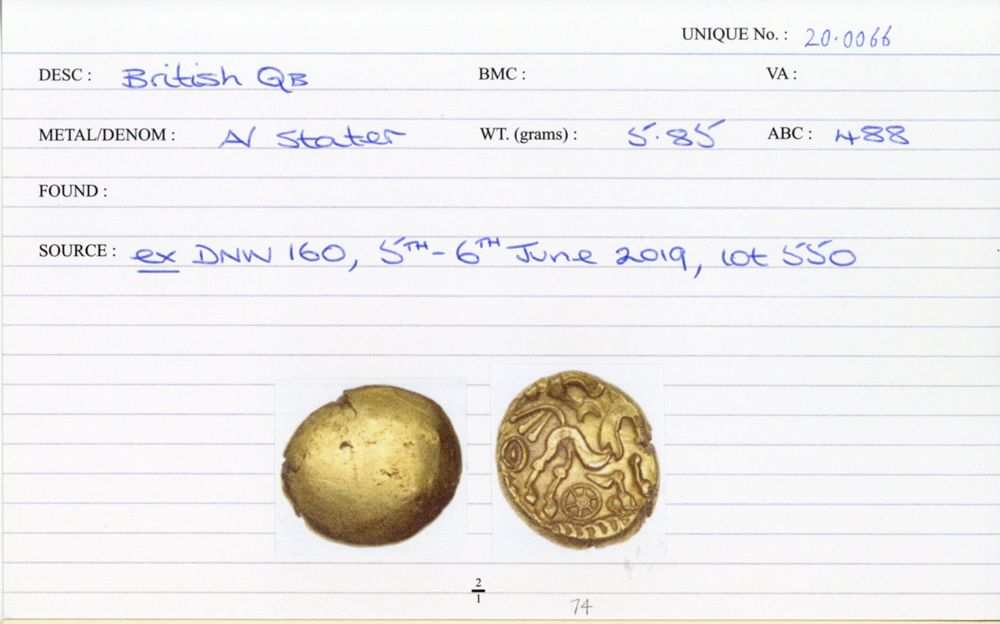 UNIQUE No. : 20.0066
DESC : British QB BMC : VA :
METAL/DENOM : AV Stater WT. (grams) : 5.85 ABC : 488
FOUND :
SOURCE : ex DNW 160, 5TH-6TH June 2019, lot 550
2
1
74